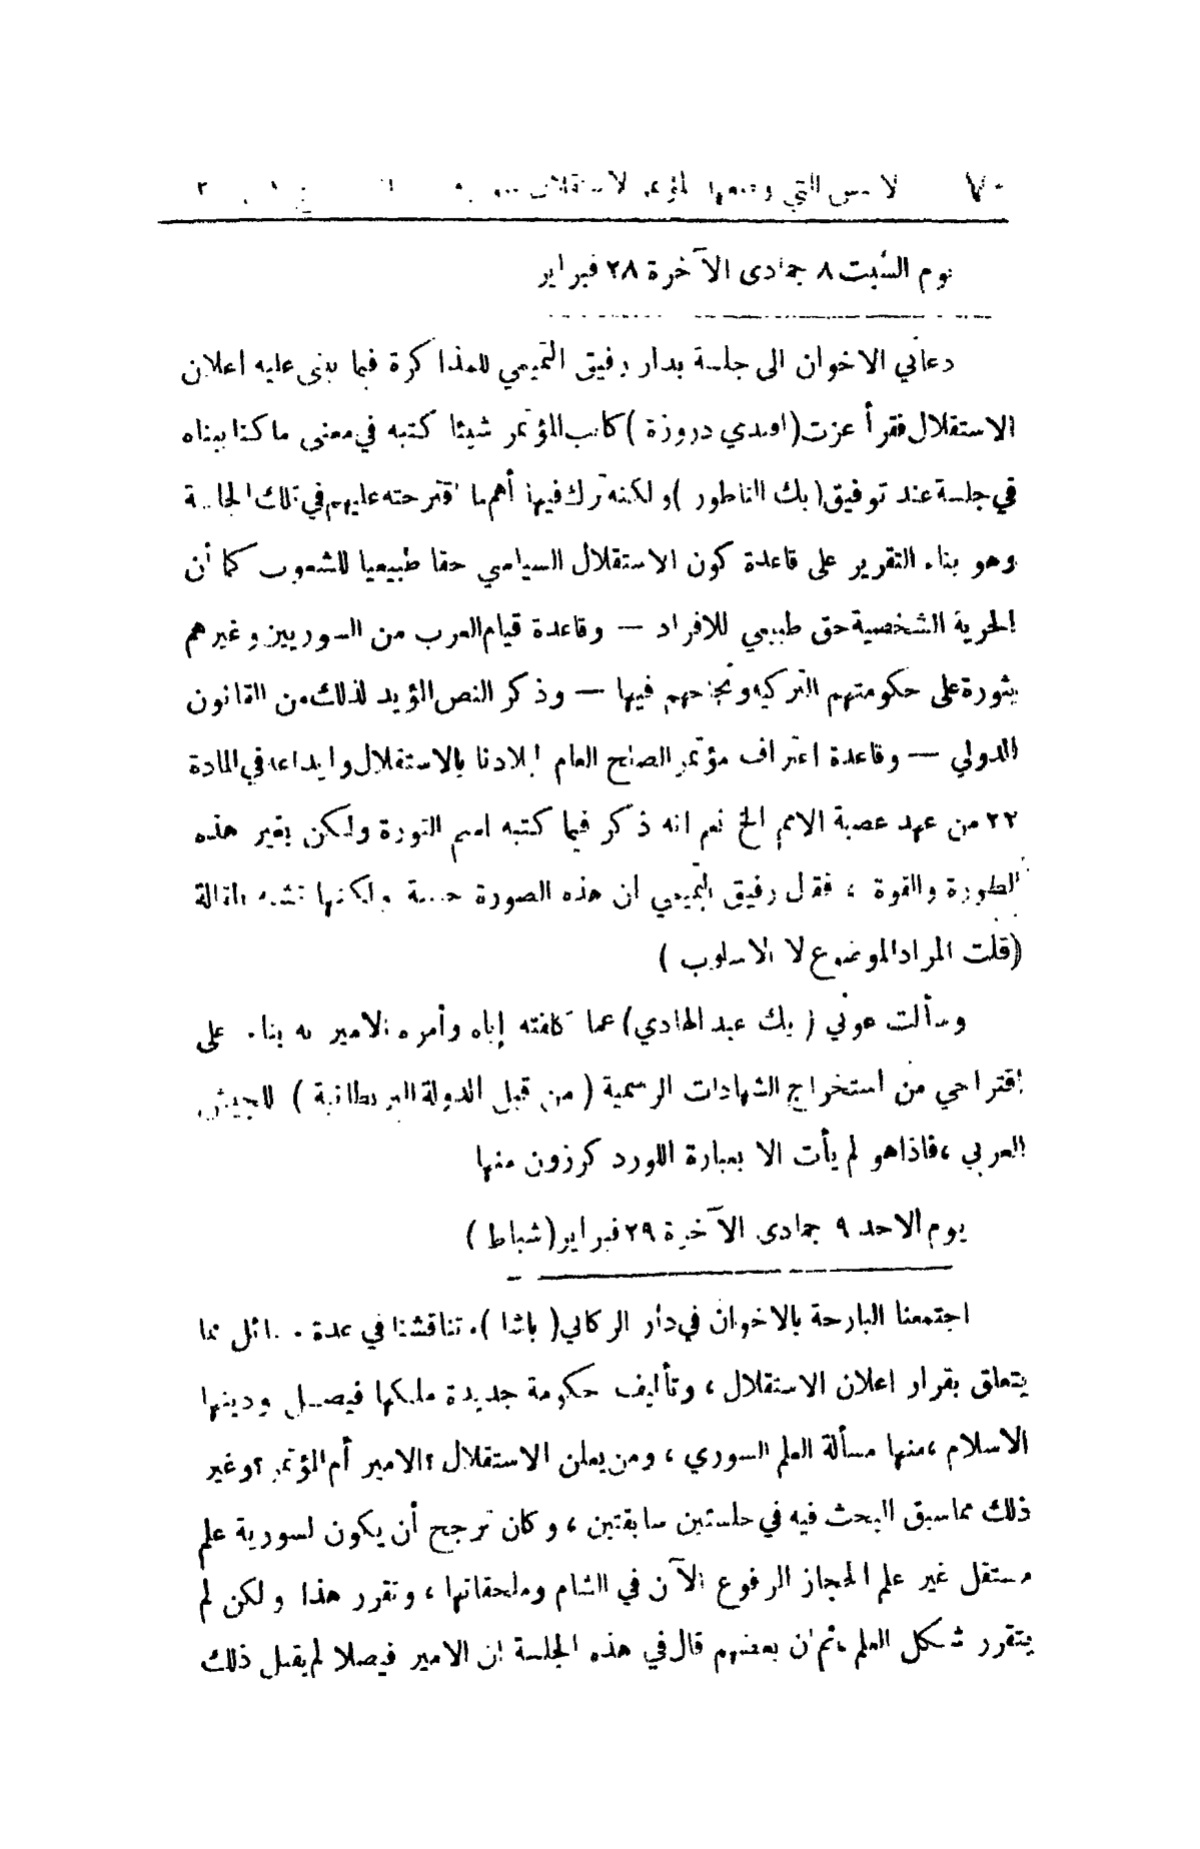 ٧٠ التي
يوم السبت ٨ جمادى الآخرة ٢٨ فبراير
دعاني الاخوان الى جلسة بدار رفيق التميمي للمذاكرة فيما يبنى عليه اعلان
الاستقلال فقرأ عزت (افندي دروزة) كاتب المؤتمر شيئا كتبه في معنى ما كنا بيناه
في جلسة عند توفيق (بك الناطور) ولكنه ترك فيها أهم ما اقترحته عليهم في تلك الجلسة
وهو بناء التقرير على قاعدة كون الاستقلال السياسي حقا طبيعيا للشعوب كما أن
الحرية الشخصية حق طبيعي للافراد — وقاعدة قيام العرب من السوريين وغيرهم
بثورة على حكومتهم التركية ونجاحهم فيها — وذكر النص المؤيد لذلك من القانون
الدولي — وقاعدة اعتراف مؤتمر الصلح العام لبلادنا بالاستقلال وايداعه في المادة
٢٢ من عهد عصبة الامم الخ نعم انه ذكر فيما كتبه اسم الثورة ولكن بغير هذه
الصورة والقوة ، فقال رفيق التميمي ان هذه الصورة حسنة ولكنها تشبه المقالة
(قلت المراد الموضوع لا الاسلوب)
وسألت عوني (بك عبد الهادي) عما كلفته إياه وأمره الامير به بناء على
اقتراحي من استخراج الشهادات الرسمية (من قبل الدولة البريطانية) للجيش
العربي ، فاذا هو لم يأت الا بعبارة اللورد كرزون منها
يوم الاحد ٩ جمادى الآخرة ٢٩ فبراير (شباط)
اجتمعنا البارحة بالاخوان في دار الركابي (باشا) . تناقشنا في عدة مسائل مما
يتعلق بقرار اعلان الاستقلال ، وتأليف حكومة جديدة ملكها فيصل ودينها
الاسلام ، منها مسألة العلم السوري ، ومن يعلن الاستقلال ؟ الامير أم المؤتمر ؟ وغير
ذلك مما سبق البحث فيه في جلستين سابقتين ، وكان ترجح أن يكون لسورية علم
مستقل غير علم الحجاز المرفوع الآن في الشام وملحقاتها ، وتقرر هذا ولكن لم
يتقرر شكل العلم ، ثم ان بعضهم قال في هذه الجلسة ان الامير فيصلا لم يقبل ذلك